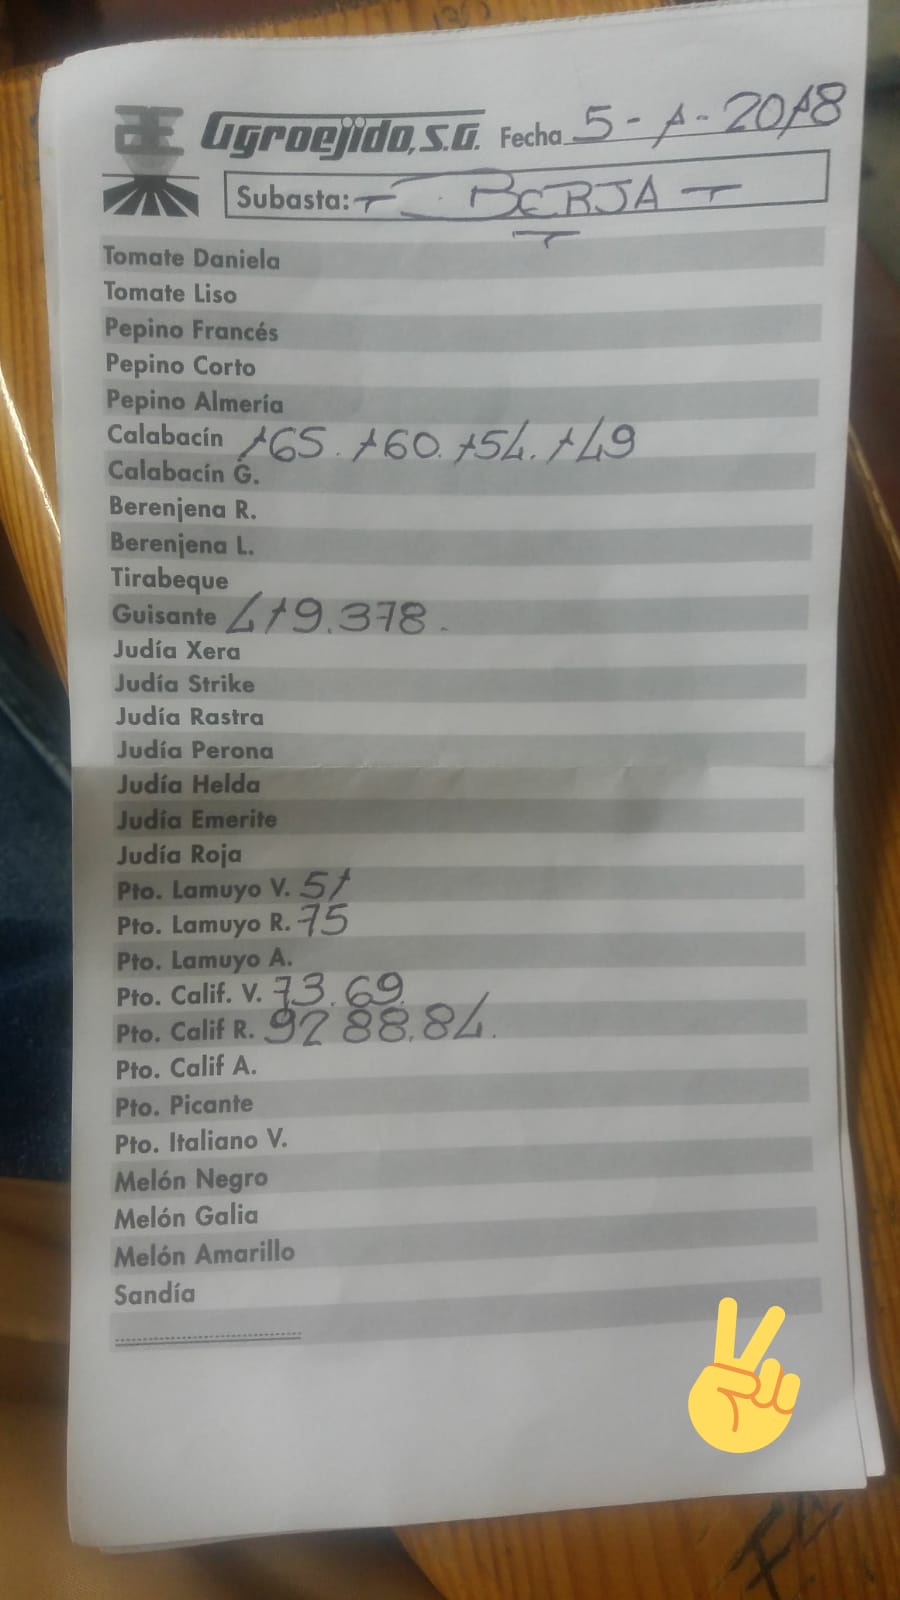 Agroejido, S.A. Fecha 5-1-2018
Subasta: BERJA
Tomate Daniela
Tomate Liso
Pepino Francés
Pepino Corto
Pepino Almería
Calabacín 165. 160. 154. 149
Calabacín G.
Berenjena R.
Berenjena L.
Tirabeque
Guisante 419. 378.
Judía Xera
Judía Strike
Judía Rastra
Judía Perona
Judía Helda
Judía Emerite
Judía Roja
Pto. Lamuyo V. 51
Pto. Lamuyo R. 75
Pto. Lamuyo A.
Pto. Calif. V. 73. 69.
Pto. Calif R. 92 88. 84.
Pto. Calif A.
Pto. Picante
Pto. Italiano V.
Melón Negro
Melón Galia
Melón Amarillo
Sandía